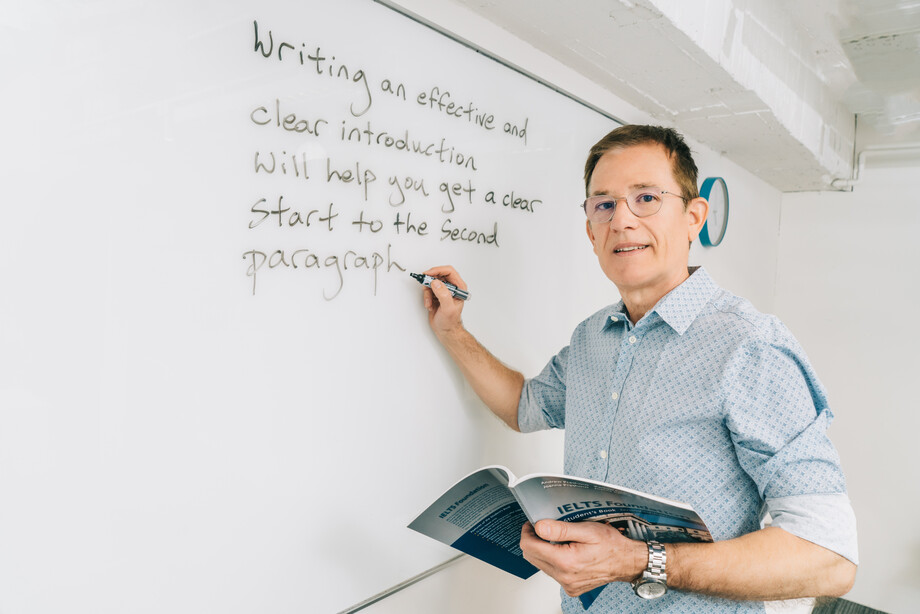 Writing an effective and
clear introduction
Will help you get a clear
Start to the Second
paragraph
IELTS Foundation
IELTS Foundation
Student's Book